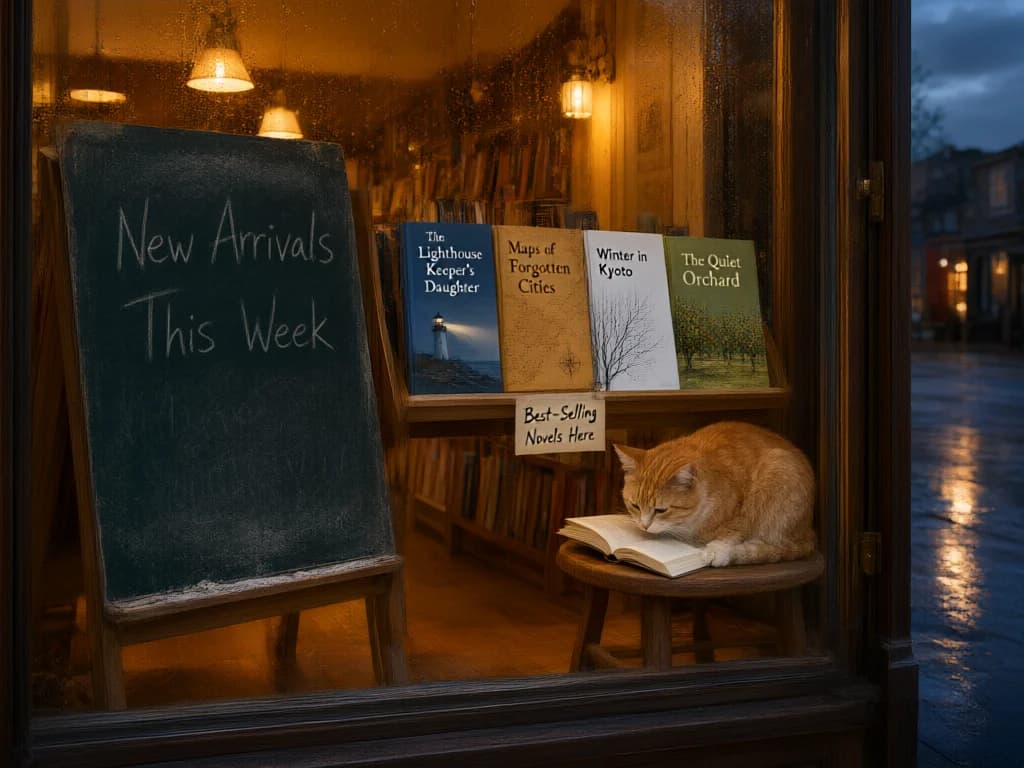 New Arrivals
This Week
The
Lighthouse
Keeper's
Daughter
Maps of
Forgotten
Cities
Winter in
Kyoto
The Quiet
Orchard
Best-Selling
Novels Here